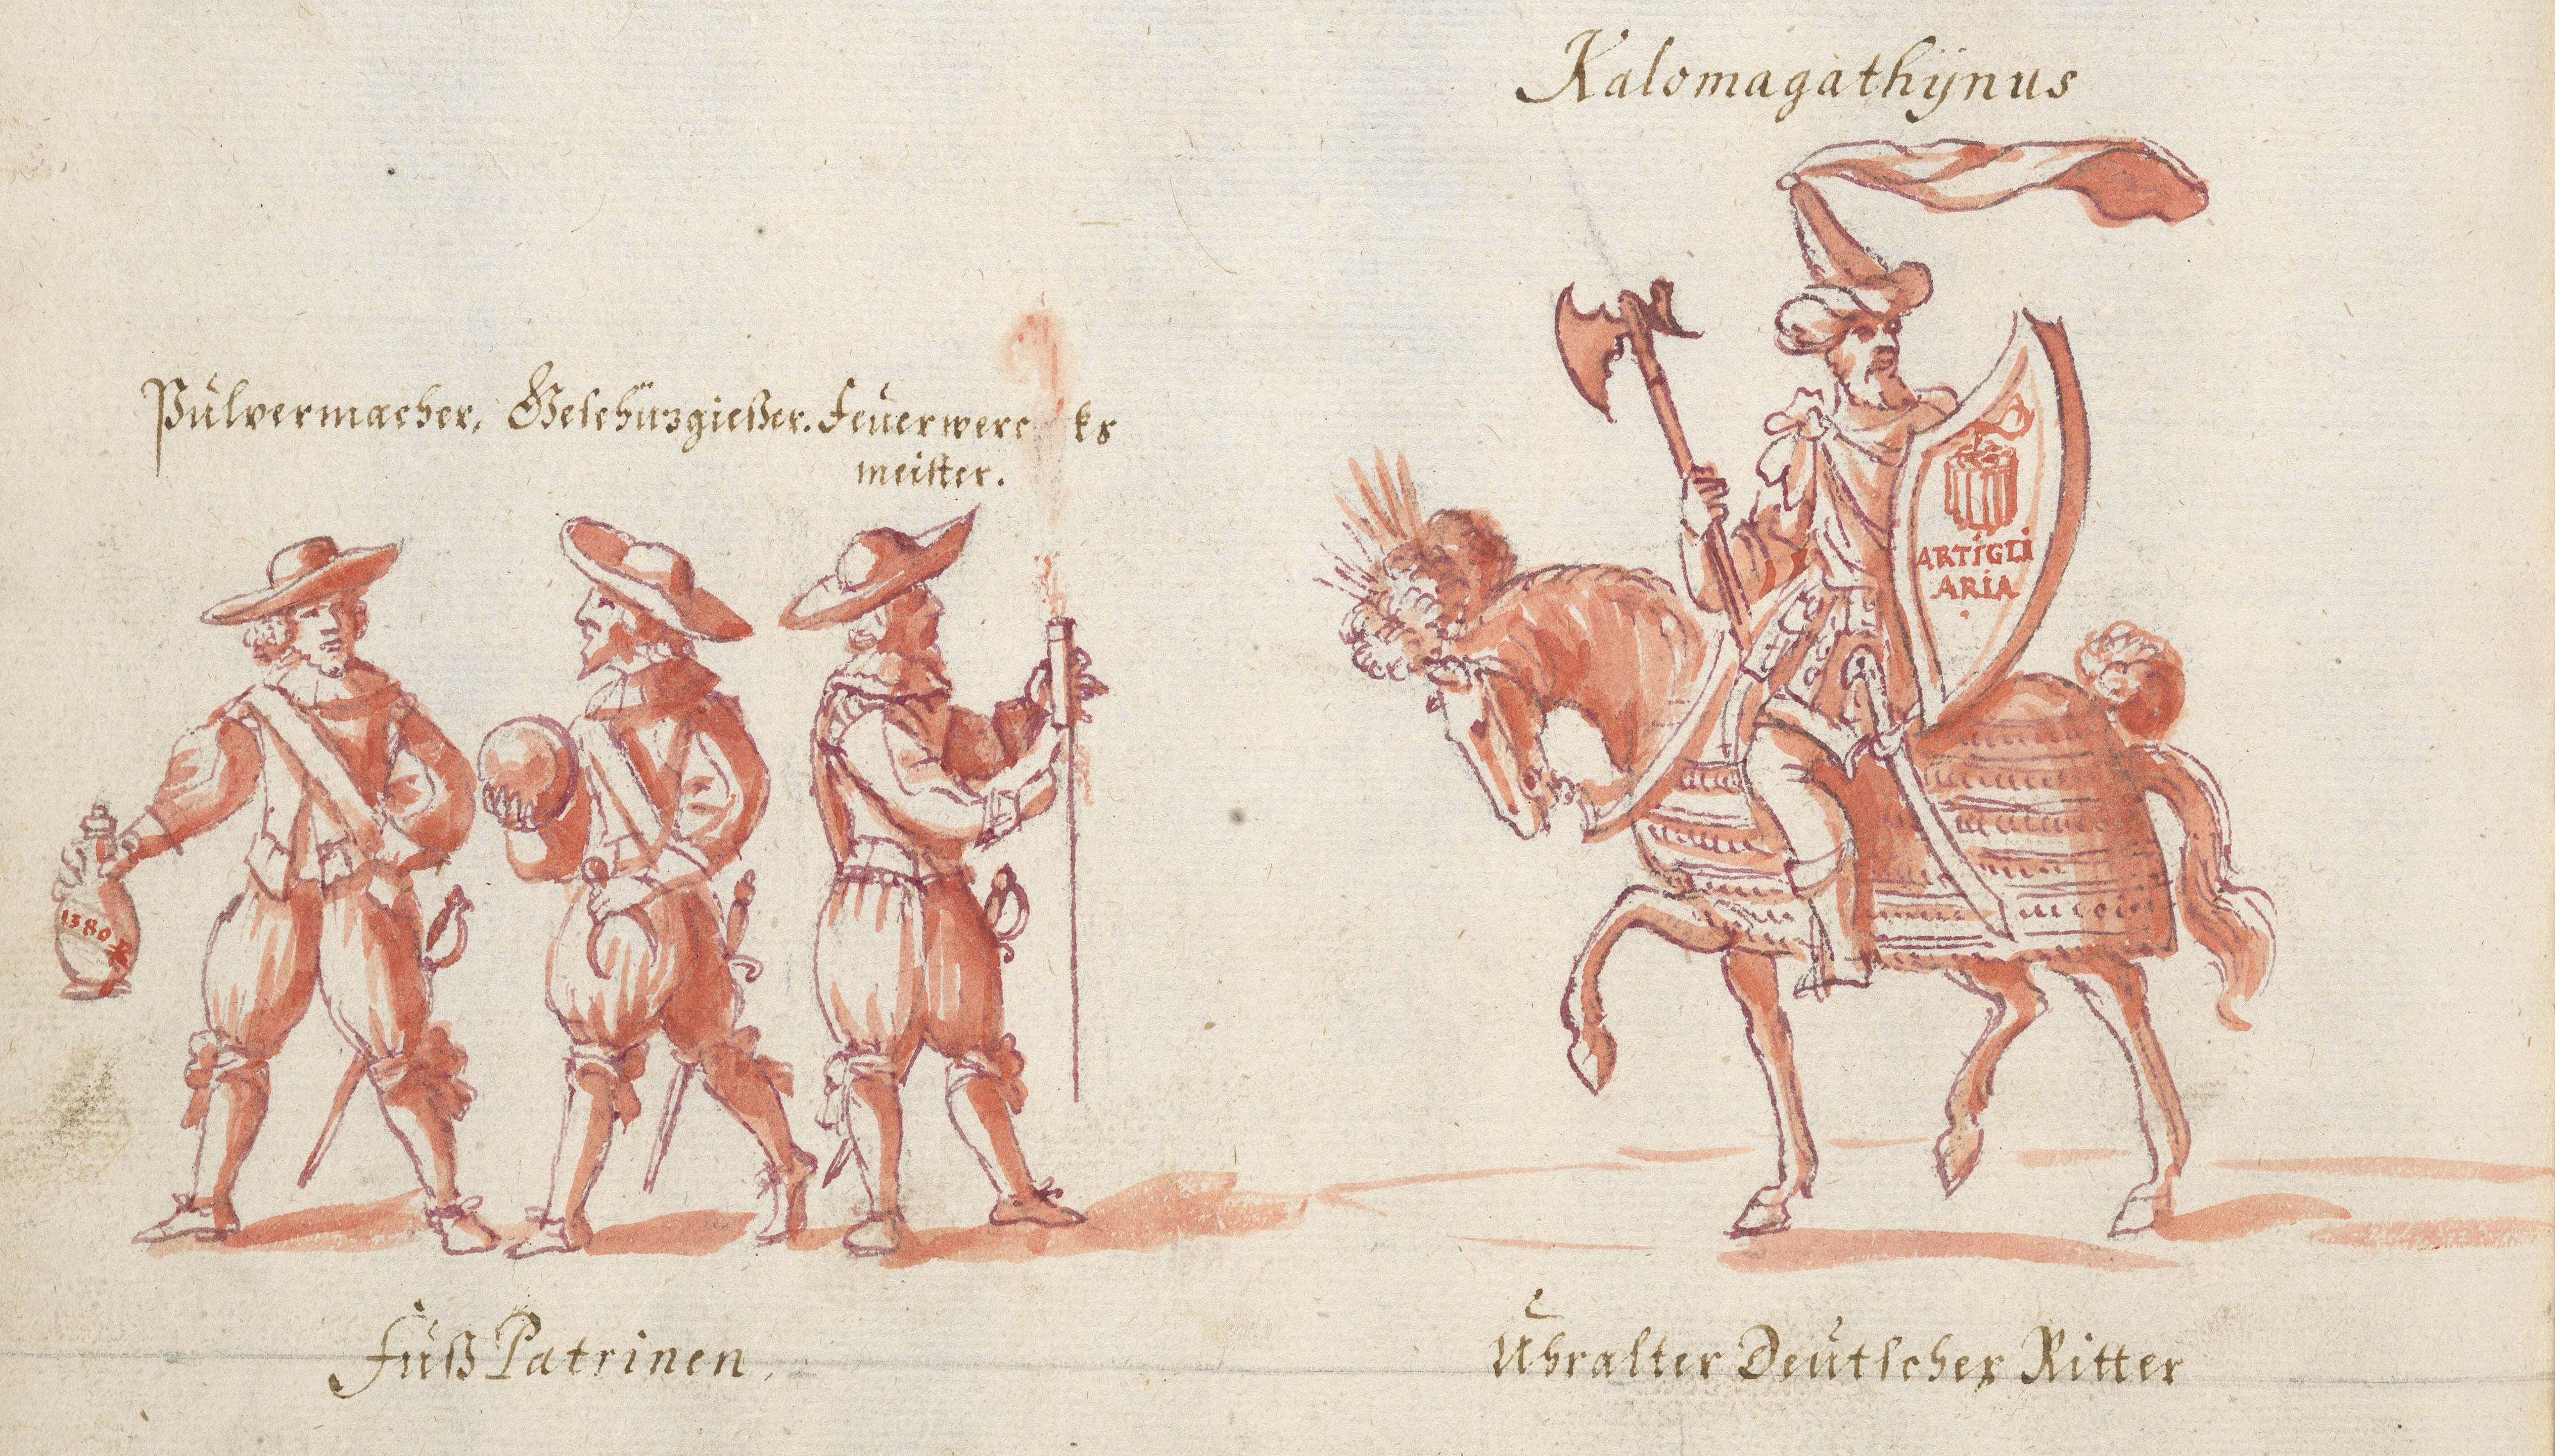 Kalomagathÿnus
Pulvermacher, Geschüzgießer. Feuerwercks
meister.
ARTIGLI
ARIA
1380
Fuß Patrinen,
Uhralter Deutscher Ritter